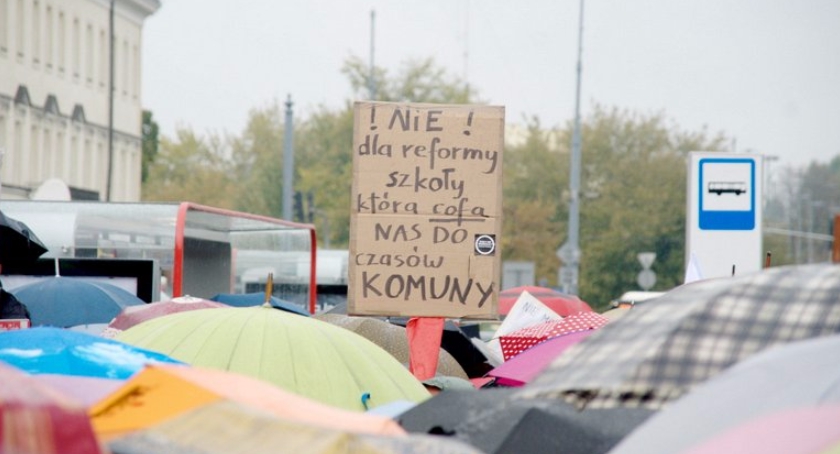 ! NiE !
dla reformy
szkoły
która cofa
NAS DO
czasów
KOMUNY